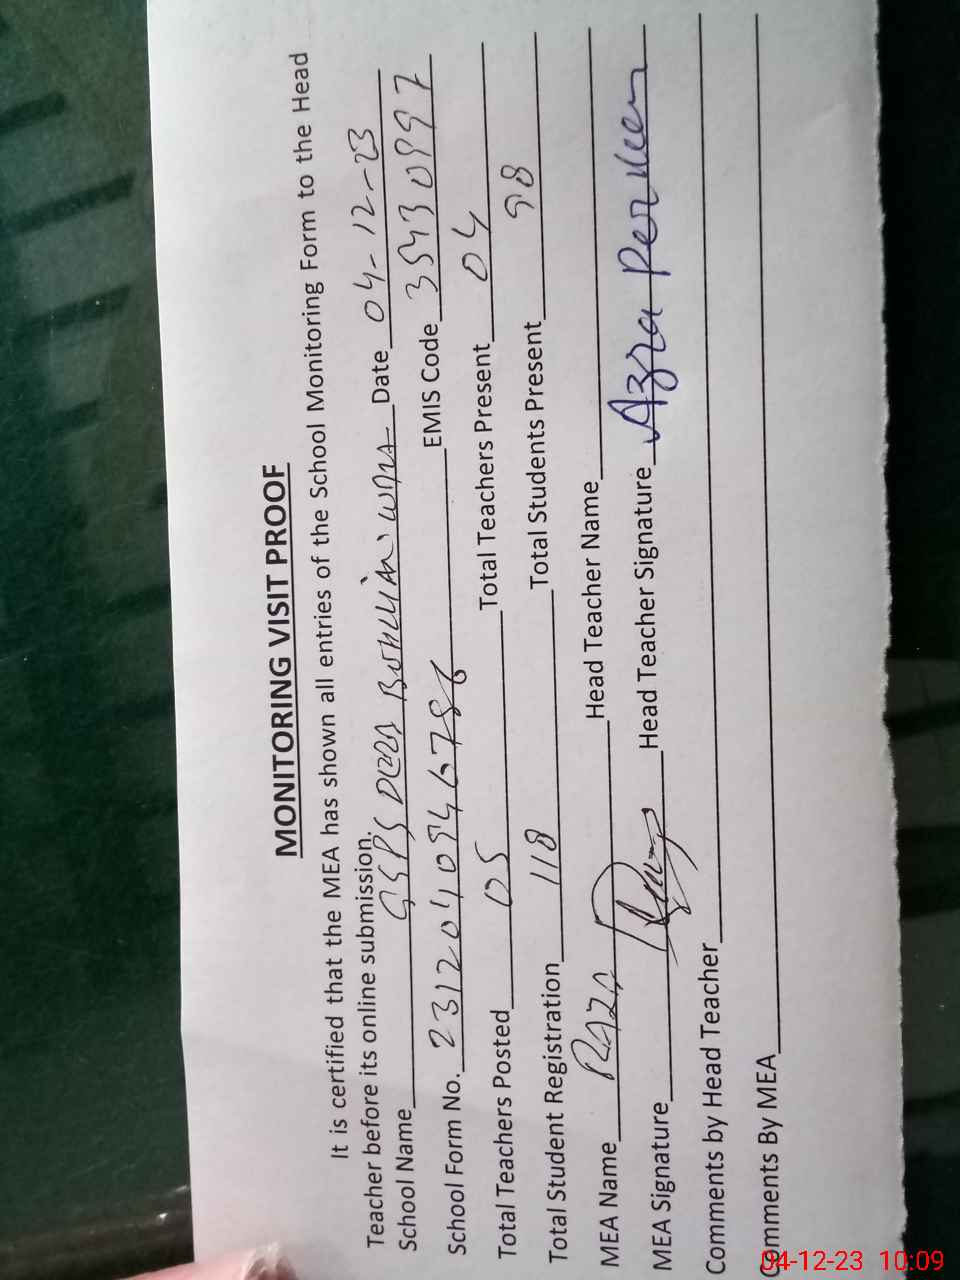 MONITORING VISIT PROOF
It is certified that the MEA has shown all entries of the School Monitoring Form to the Head
Teacher before its online submission.
School Name GSPS Date 04-12-23
School Form No. 23120410946786 EMIS Code 35430997
Total Teachers Posted 05 Total Teachers Present 04
Total Student Registration 118 Total Students Present 98
MEA Name RAZA Head Teacher Name
MEA Signature Head Teacher Signature Azra Perveen
Comments by Head Teacher
Comments By MEA
04-12-23 10:09